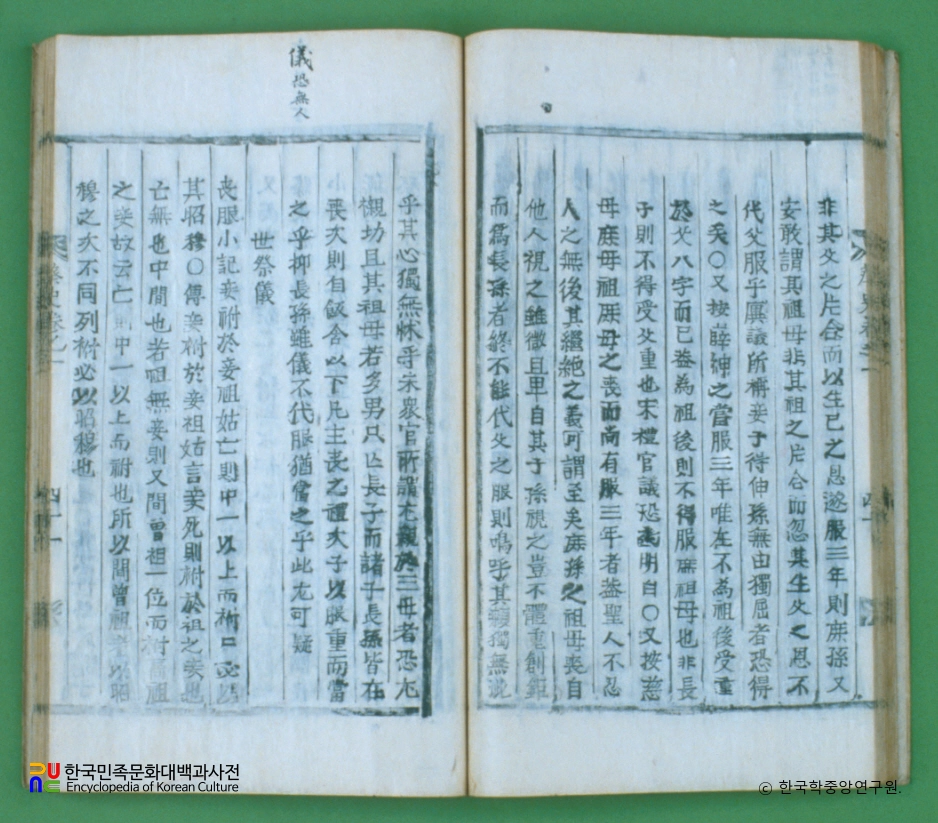 非其父之片合而以生己之恩遂服三年則庶孫又
安敢謂其祖母非其祖之片合而忽其生父之恩不
代父服乎 議所 妾子待伸孫無由獨屈者恐得
之矣〇又按薛紳之當服三年唯在不為祖後受重
於父八字而已盖為祖後則不得服 祖母也非長
子則不得受父重也宋禮官議恐 明白〇又按慈
母庶母祖庶母之喪而尚有服三年者盖聖人不忍
人之無後其繼絶之義可謂至矣庶孫之祖母喪自
他人視之雖微且卑自其子孫視之豈不體重創鉅
而爲長孫者終不能代父之服則嗚呼其 獨無
儀恐無人
乎其心獨無怵乎宋衆官所謂尤親於三母者恐尤
襯切且其祖母若多男只亾長子而諸子長孫皆在
喪次則自飯含以下凡主喪之禮次子以服重而當
之乎抑長孫雖儀不代服猶當之乎此尤可疑
世祭儀
喪服小記妾祔於妾祖姑亡則中一以上而祔 必以
其昭穆〇傳妾祔於妾祖姑言妾死則祔於祖之妾也
亡無也中間也若祖無妾則又間曾祖一位而祔髙祖
之妾故云亡則中一以上而祔也所以間曾祖 以昭
穆之次不同列祔必以昭穆也
한국민족문화대백과사전
Encyclopedia of Korean Culture
© 한국학중앙연구원.